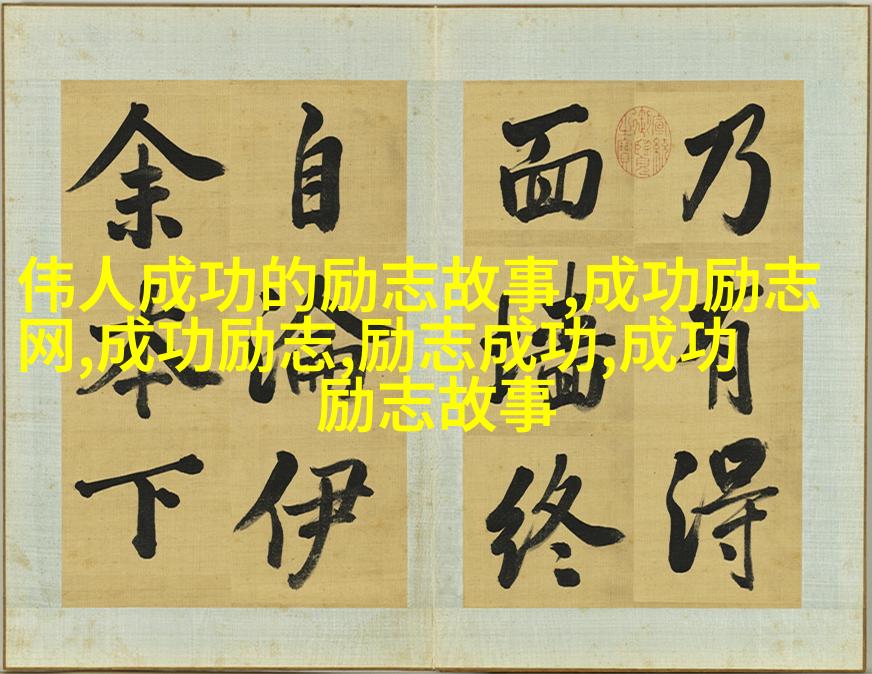 伟人成功的励志故事,成功励志
网,成功励志,励志成功,成功
励志故事
乃有得
面墙终
自論伊
余本下